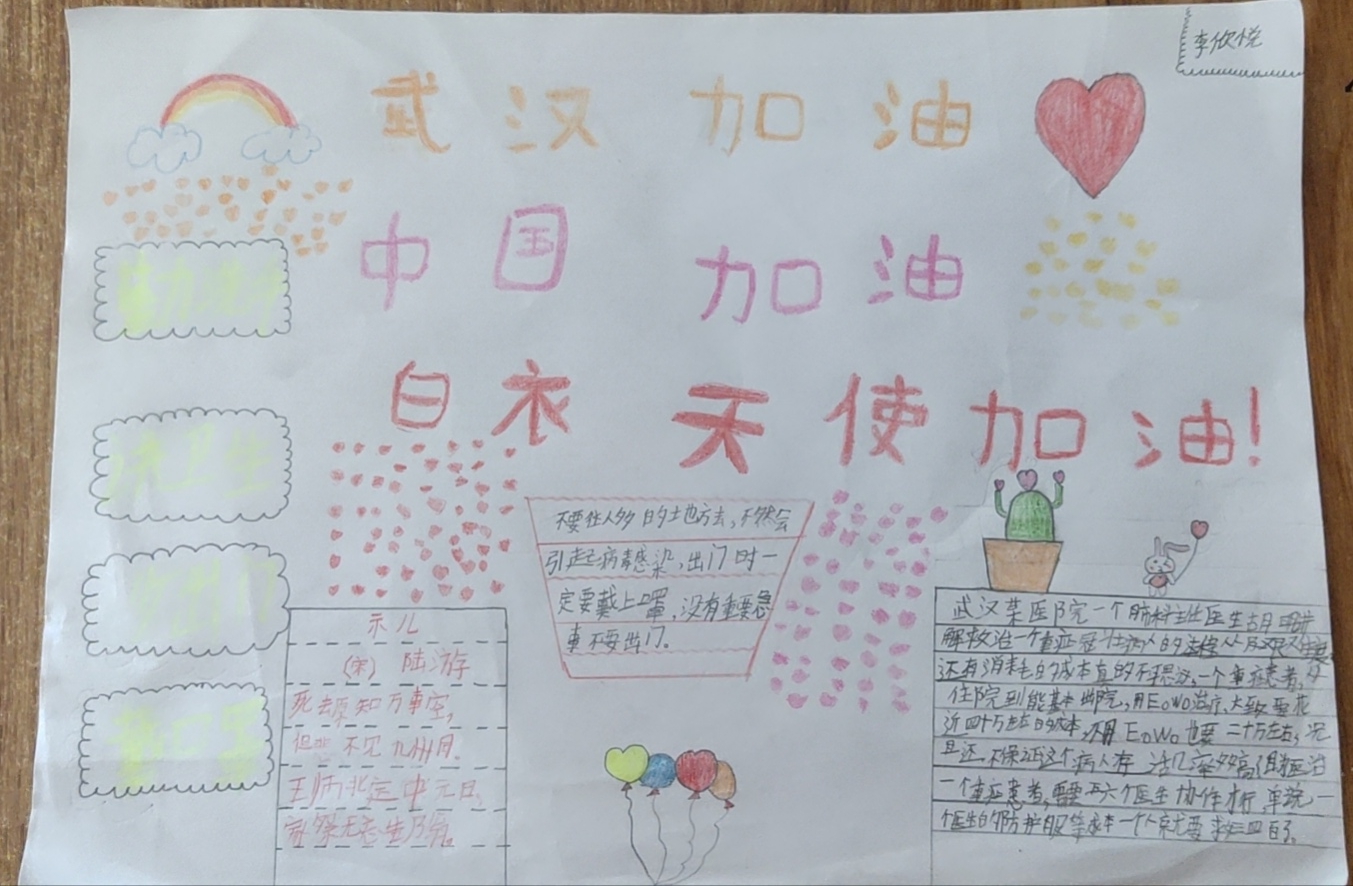 李欣悦
武汉 加油
中国 加油
白衣天使加油!
讲卫生
戴口罩
不要往人多的地方去,不然会
引起病毒感染,出门时一
定要戴上口罩,没有重要急
事不要出门。
示儿
(宋) 陆游
死去原知万事空,
但悲不见九州同。
王师北定中元日,
家祭无忘告乃翁。
武汉某医院一个肺科主任医生胡明
解救治一个重症冠状病人的
还有消耗的成本真的不
一个重症患者,从
住院到能基本出院,用EoWo治疗,大致要花
近四十万左右的成本,不用EoWo也要二十万左右,况
且还不保证这个病人存活几率多高
一个重症患者,需要五六个医生协作才行,单说一
个医生的防护服等成本一个人就要三四百了。